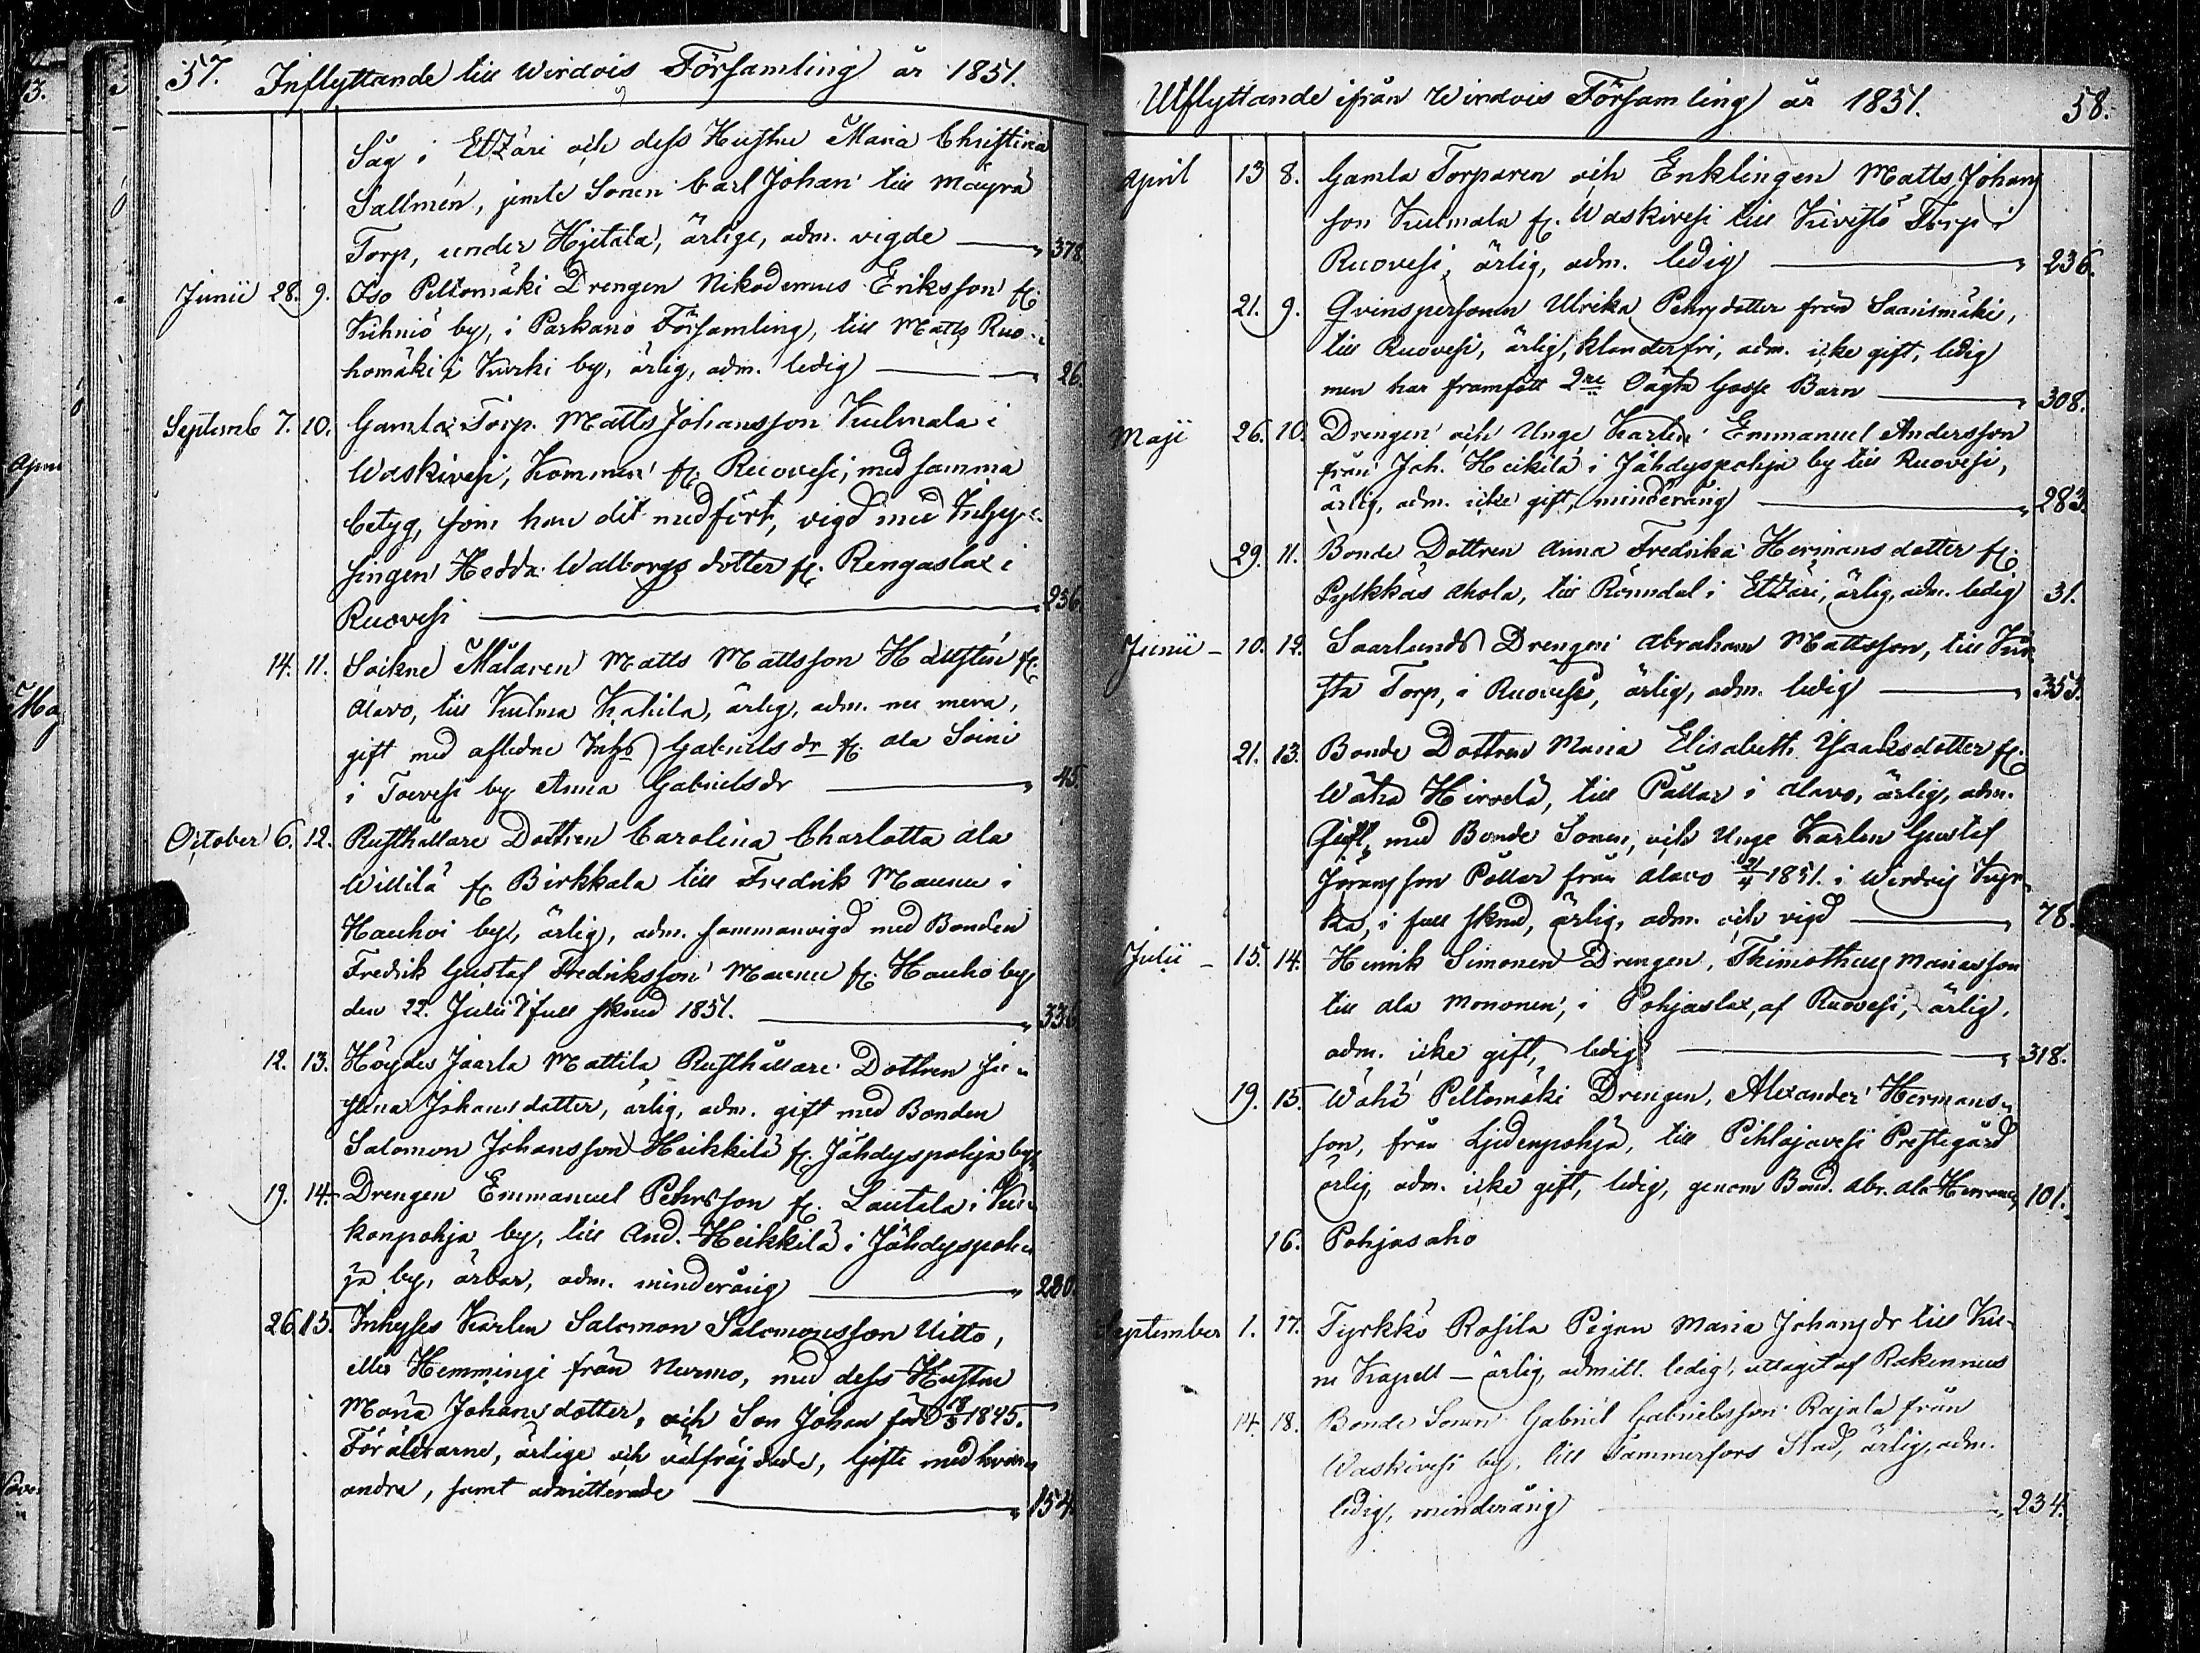 57. Inflyttande till Wirdois Församling år 1851.
Såg i Etzäri och dess Hustru Maria Christina
Sallmén, jemte Sonen Carl Johan till Mäyrä
Torp, under Hjetala, ärlige, adm. vigde 378.
Junii 28. 9. Iso Peltomäki Drengen Nikodemus Eriksson fr.
Kihniö by, i Parkano Församling, till Matts Ruo-
homäki i Kurki by, ärlig, adm. ledig 26.
Septemb 7. 10. Gamla Torp. Matts Johansson Kulmala i
Waskivesi, kommen fr. Ruovesi, med samma
betyg, som han dit medfört, vigd med Inhys-
singen Hedda Walborgs dotter fr. Rengaslax i
Ruovesi 236.
14. 11. Sockne Målaren Matts Mattsson Hallstén fr.
Alavo, till Kulma Kahila, ärlig, adm. nu mera,
gift med afledne Inhs Gabriels dr fr. Ala Soini
i Toivesi by Anna Gabrielsdr 45.
October 6. 12. Rusthållare Dottren Carolina Charlotta Ala
Willilä fr. Birkkala till Fredrik Maunu i
Hauhoi by, ärlig, adm. sammanvigd med Bonden
Fredrik Gustaf Fredriksson Maunu fr. Hauho by
den 22. Julii i full sknd 1851. 336
12. 13. Höydes Jaarla Mattila Rusthållare Dottren Ju-
stina Johansdotter, ärlig, adm. gift med Bonden
Salomon Johansson Heikkilä fr. Jähdyspohja by
19. 14. Drengen Emmanuel Pehrsson fr. Lautala i Kur-
kanpohja by, till And. Heikkilä i Jähdyspoh-
ja by, ärbar, adm. minderårig 280.
26. 15. Inhyses Karlen Salomon Salomonsson Uitto,
eller Hemmingi från Nurmo, med dess Hustru
Maria Johans dotter, och Son Johan född 18/5 1845.
Föräldrarne, ärlige och välfräjdade, Gifte med hvar-
andra, samt admitterade 154.
Utflyttande ifrån Wirdois Församling år 1851. 58.
April 13 8. Gamla Torparen och Enklingen Matts Johans
son Kulmala fr. Waskivesi till Kivistö Torp i
Ruovesi, ärlig, adm. ledig 236.
21. 9. Qvinspersonen Ulrika Pehrsdotter från Saarismäki,
till Ruovesi, ärlig, klanderfri, adm. icke gift, ledig
men har framfött 2ne Oägta Gosse Barn 308.
Maji 26. 10. Drengen och Unge Karlen Emmanuel Andersson
från Joh. Heikilä i Jähdyspohja by till Ruovesi,
ärlig, adm. icke gift, minderårig 283.
29. 11. Bonde Dottren Anna Fredrika Hermans dotter fr.
Pylkkäs Ahola, till Rönndal i Etzäri, ärlig, adm. ledig 31.
Junii 10. 12. Saarlunds Drengen Abraham Mattsson, till
sta Torp, i Ruovesi, ärlig, adm. ledig 353.
21. 13. Bonde Dottren Maria Elisabeth Isaksdotter fr.
Wähä Hirvelä, till Pållar i Alavo, ärlig, adm.
Gift, med Bonde Sonen, och Unge Karlen Gustaf
Jöransson Pållar från Alavo 21/4 1851. i Wirdois Kyr-
ka, i full sknd, ärlig, adm. och vigd 78.
Julii 15. 14. Henrik Simonen Drengen, Thimotheus Mariasson
till Ala Mononen, i Pohjaslax, af Ruovesi, ärlig,
adm. icke gift, ledig 318.
19. 15. Wähä Peltomäki Drengen, Alexander Hermans-
son, från Liedenpohja, till Pihlajavesi Prestgård
ärlig, adm. icke gift, ledig, genom Bond. Abr. Ala 101.
16. Pohjasaho
September 1. 17. Tyrkkö Rosila Pigan Maria Johansdr till Ku-
ru Kapell – ärlig, admitt. ledig, uttaget af Rakennus
14. 18. Bonde Sonen Gabriel Gabrielsson Rajala från
Waskivesi by, till Tammerfors Stad, ärlig, adm.
ledig, minderårig 234.